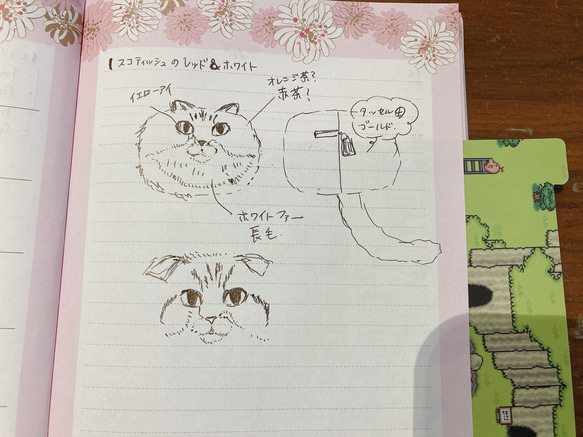 スコティッシュ の レッド & ホワイト
イエローアイ
オレンジ茶?
赤茶!
タッセル
ゴールド
ホワイト ファー
長毛